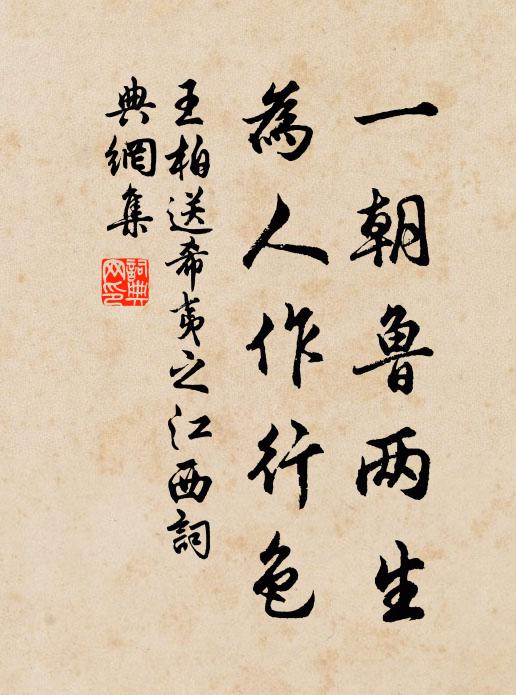 一朝鲁两生
為人作行色
王柏送希夷之江西詞
典網集
詞典網印